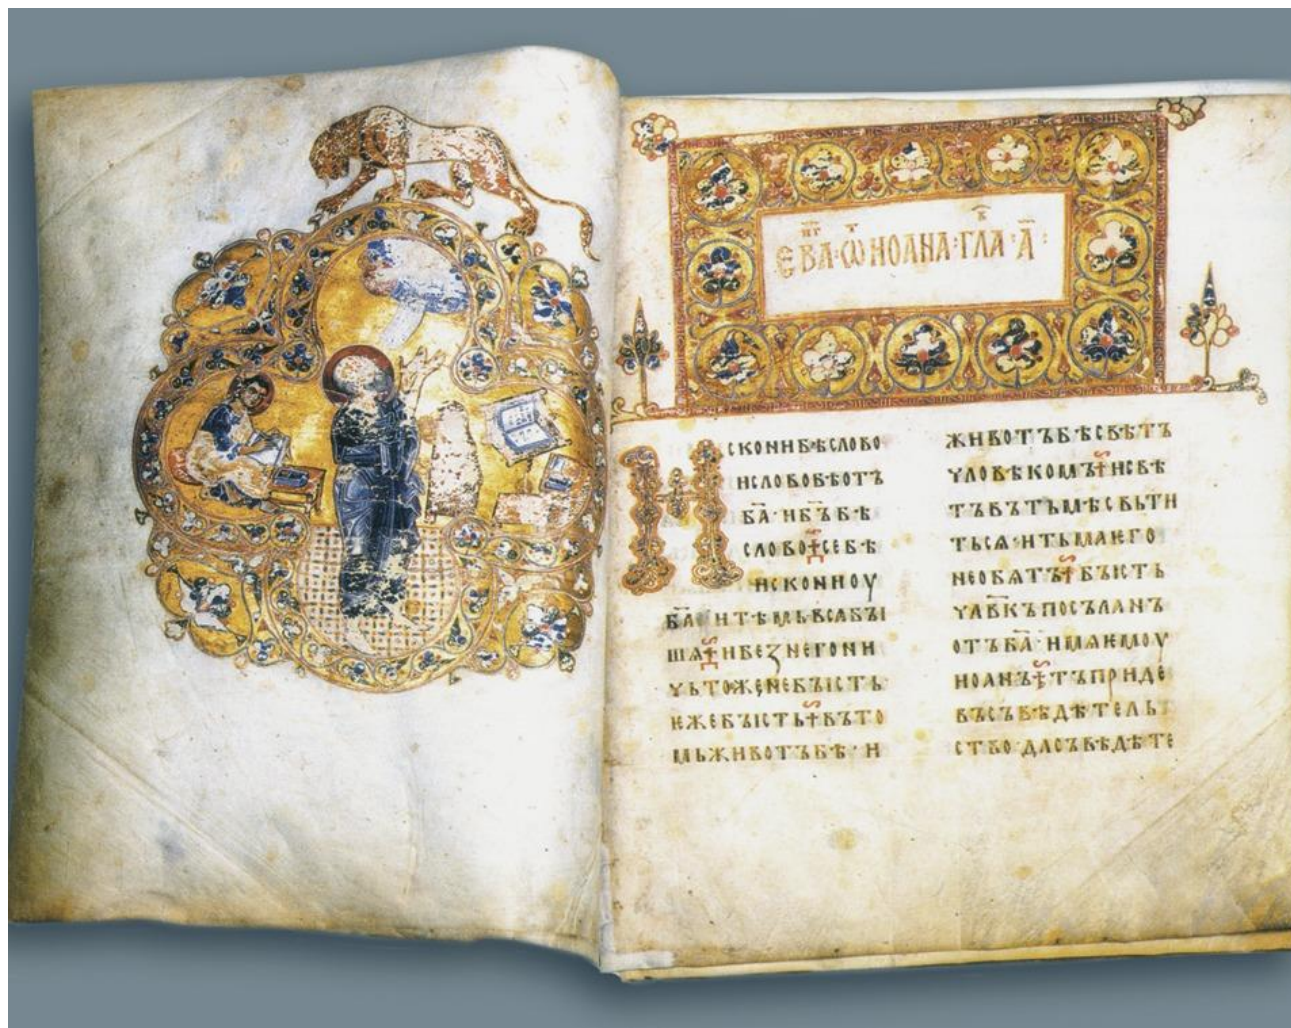 ЕВА·ѾИОАНА·ГЛА·А҃·
ИСКОНИБѢСЛОВО
ИСЛОВОБѢОТЪ
БА҃·ИБ҃ЪБѢ
СЛОВО·СЕБѢ
ИСКОНИОУ
БА҃ИТѢМЬВСАБЫ
ШѦ·ИБЕЗНЕГОНИ
ЧЬТОЖЕНЕБЪІСТЬ
ѤЖЕБЪІСТЬ·ВЪТО
МЬЖИВОТЪБѢ·И
ЖИВОТЪБѢСВѢТЪ
ЧЛОВѢКОМЪ·ИСВѢ
ТЪВЪТЬМѢСВЬТИ
ТЬСѦ·ИТЬМАѤГО
НЕОБѦТЪ·БЪІСТЬ
ЧЛ҃ВКЪПОСЪЛАНЪ
ОТЪБА҃·ИМѦѤМОУ
ИОАНЪ·ТЪПРИДЕ
ВЪСЪВѢДѢТЕЛЬ
СТВО·ДАСЪВѢДѢТЕ